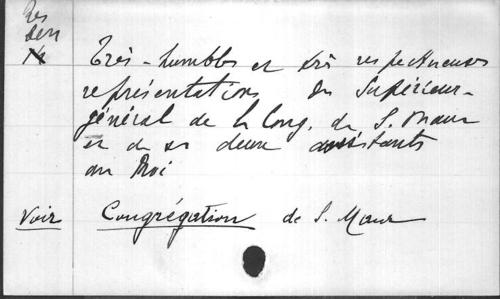 Res
Très-humbles et très respectueuses
représentations du Supérieur-
général de la Cong. de S. Maur
et de ses deux assistants
au Roi
Voir Congrégation de S. Maur